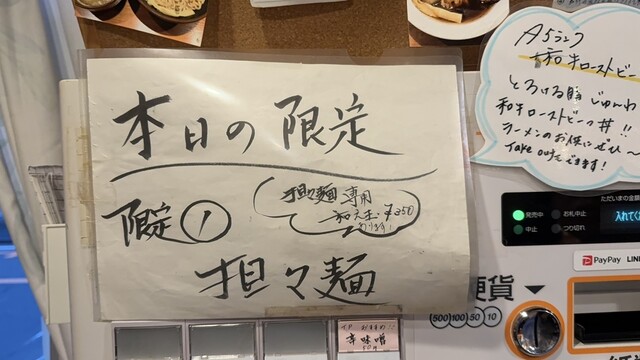 本日の限定
限定①
担々麺専用
和え玉¥250
あります!
担々麺
A5ランク
和牛ローストビー
とろける脂じゅんわ
和牛ローストビーフ丼!!
ラーメンのお供にぜひ〜
Take outできます!
ただいまの金額
発売中
お札中止
中止
つり切れ
入れてく
PayPay
LINE
硬貨
500 100 50 10
おすすめ
辛味噌
50円